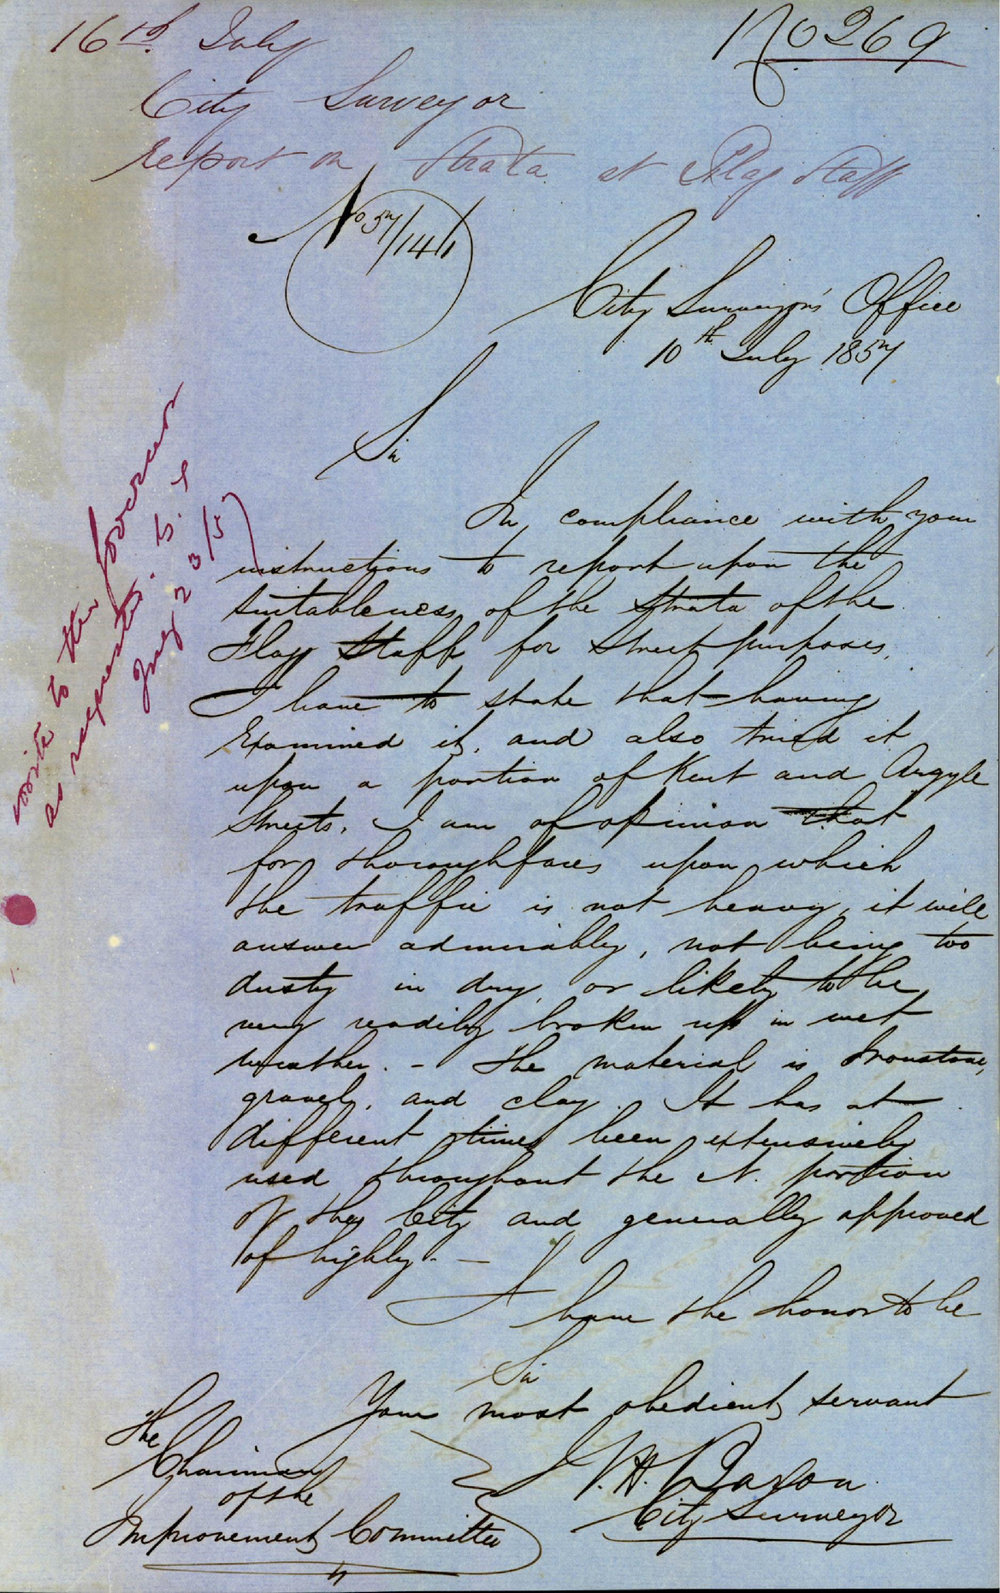 16th July
No 269
City Surveyor
report on Strata at Flag Staff
No 57/141
City Surveyor's Office
10th July 1857
Sir
In compliance with your
instructions to report upon the
suitableness of the Strata of the
Flag Staff for Street purposes,
I have to state that having
Examined it, and also tried it
upon a portion of Kent and Argyle
Streets, I am of opinion that
for thoroughfares upon which
the traffic is not heavy, it will
answer admirably, not being too
dusty in dry, or likely to be
very readily broken up in wet
weather. - The material is Ironstone,
gravel, and clay. It has at
different times been extensively
used throughout the N. portion
of the City and generally approved
of highly. -
I have the honor to be
Sir
Your most obedient servant
City Surveyor
The
Chairman
of the
Improvement Committee
write to the Governor
as requested
July 23/57